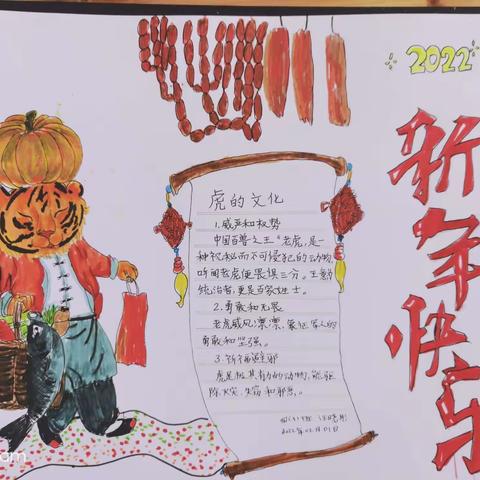 2022
新年快乐
虎的文化
1.威严和权势
中国百兽之王"老虎,是一
种祝秘而不可侵犯的动物,
听闻老虎便畏惧三分。王
统治者,更是百家姓士。
2.勇敢和无畏
老虎威风凛凛,象征军人的
勇敢和坚强。
3.祈福避邪
虎是极具有力的动物,能驱
除火灾、失窃和邪恶。
2022年02月01日